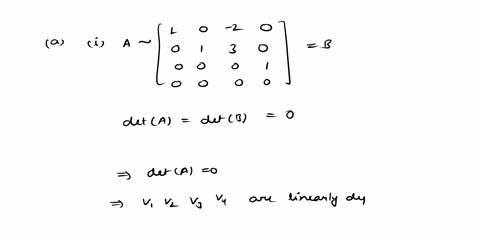 1 0 -2 0
(a) (i) A ~ 0 1 3 0 = B
0 0 0 1
0 0 0 0
det(A) = det(B) = 0
⇒ det(A) = 0
⇒ V1 V2 V3 V4 are linearly de